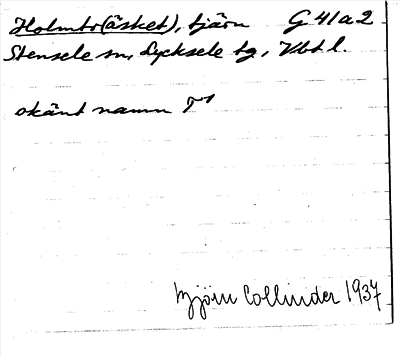 Holmtr(äsket), tjärn G 41 a 2
Stensele sn, Lycksele tg, Vbtl.
okänt namn T¹
Björn Collinder 1937